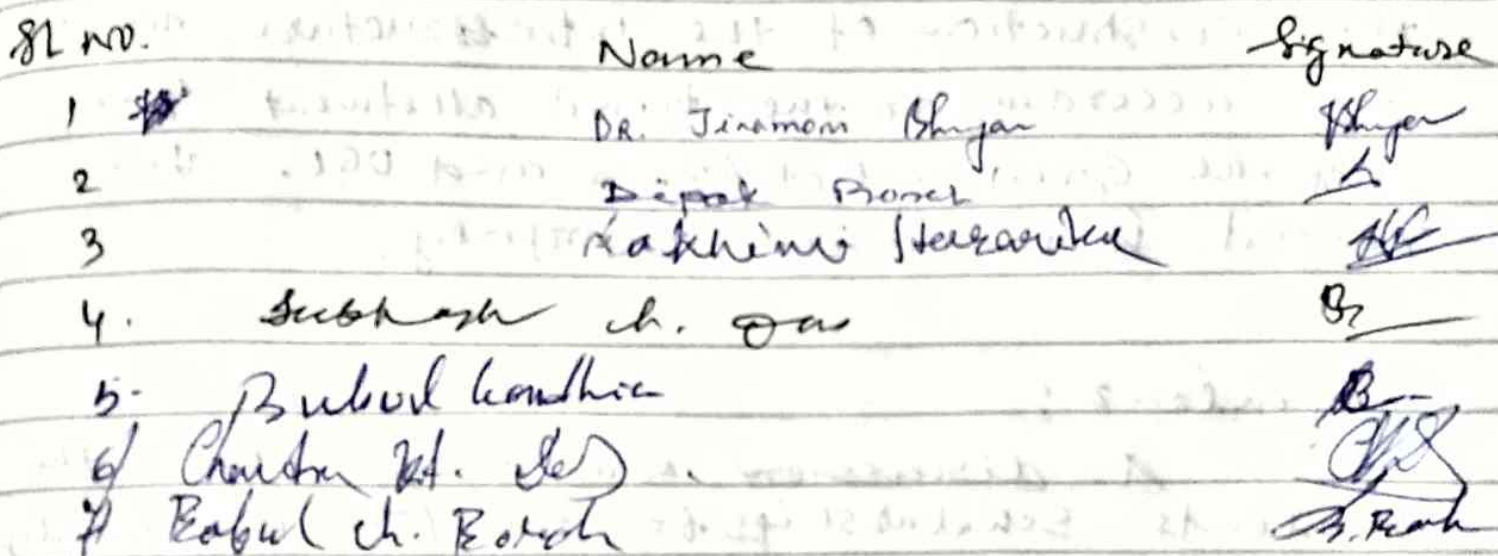 Sl no. Name Signature
1 DR. Jinamoni Bhuyan Bhuyan
2 Dipak Borah
3 Lakhimi Hazarika
4. Subhash ch. Das
5. Bubul
6/ Chandra Kt. Das
7/ Babul ch. Borah B. Borah